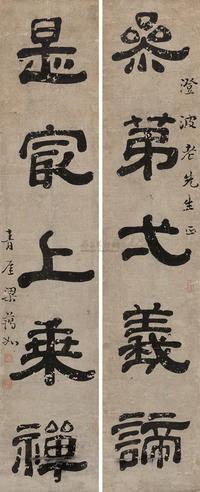 澄波老先生正
參苐弌義諦
是㝡上乘禪
青厓梁藹如